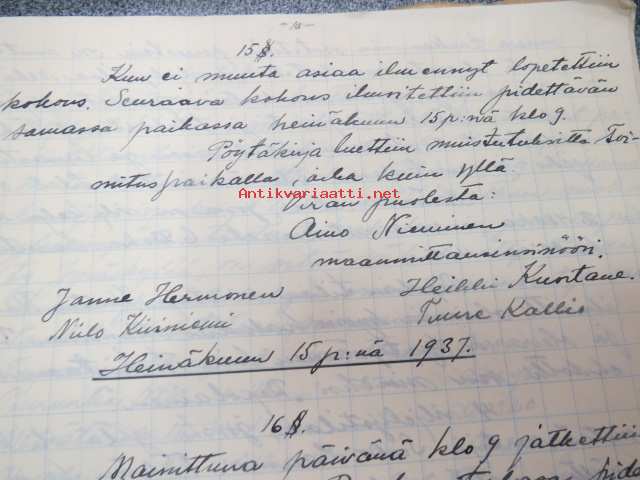 15 §.
Kun ei muuta asiaa ilmennyt lopetettiin
kokous. Seuraava kokous ilmoitettiin pidettävän
samassa paikassa heinäkuun 15 p:nä klo 9.
Pöytäkirja luettiin muistutuksitta toi-
mituspaikalla, aika kuin yllä.
Antikvariaatti.net
Viran puolesta:
Aino Nieminen
maanmittausinsinööri.
Janne Hermonen Heikki Kuortane.
Niilo Kiisniemi Tuure Kallio
Heinäkuun 15 p:nä 1937.
16 §.
Mainittuna päivänä klo 9 jatkettiin